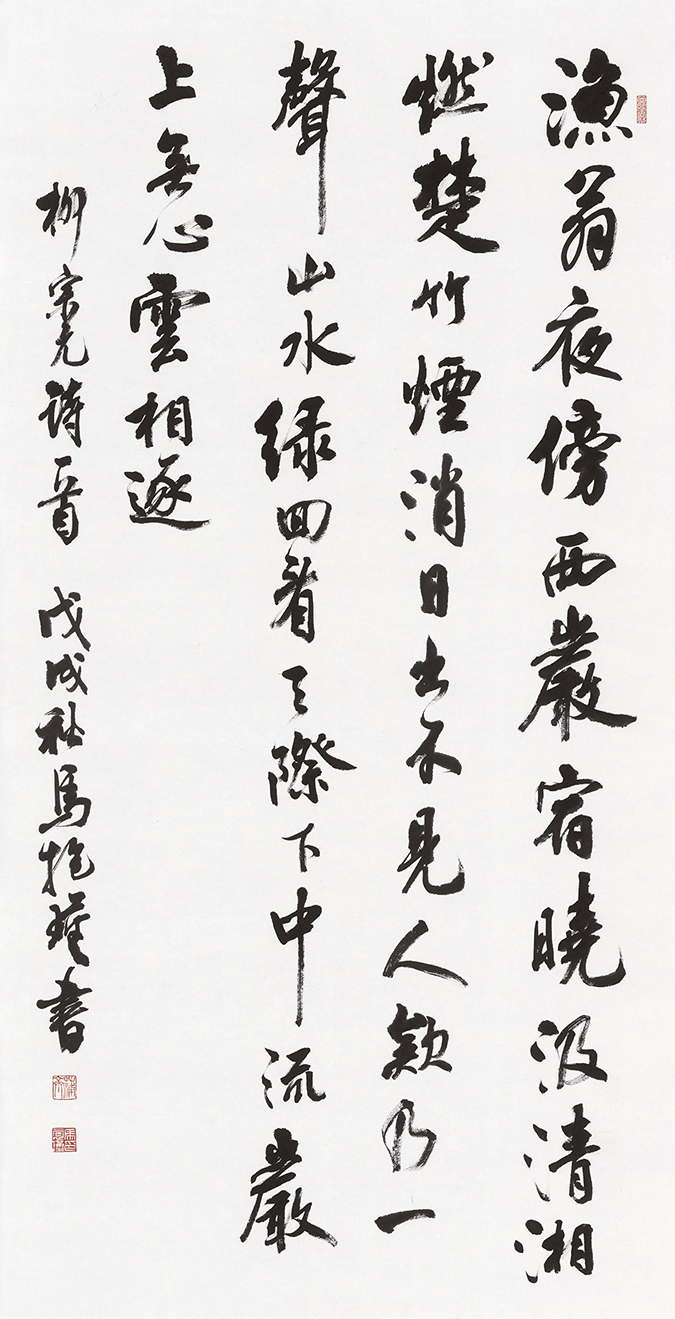 漁翁夜傍西巖宿曉汲清湘
燃楚竹煙消日出不見人欸乃一
聲山水绿回看天際下中流巖
上無心雲相逐
柳宗元詩一首 戊戌秋馬書